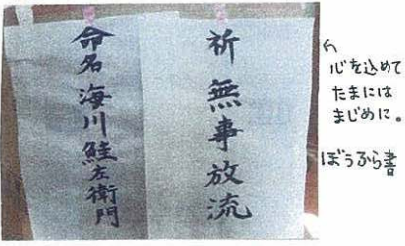 祈無事放流
命名海川鮭左衛門
心を込めて
たまには
まじめに。
ぼうふら書